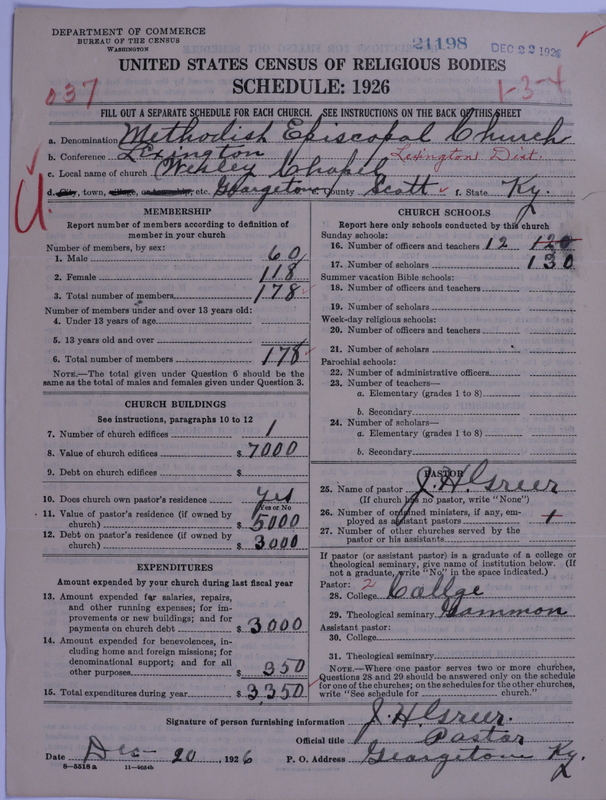 DEPARTMENT OF COMMERCE
BUREAU OF THE CENSUS
WASHINGTON
21198
DEC 22 1926
UNITED STATES CENSUS OF RELIGIOUS BODIES
SCHEDULE: 1926
037
1-3-4
FILL OUT A SEPARATE SCHEDULE FOR EACH CHURCH. SEE INSTRUCTIONS ON THE BACK OF THIS SHEET
a. Denomination Methodish Episcopal Church
b. Conference Lexington Lexington Dist.
c. Local name of church Wesley Chapel
d. City, town, village, or township, etc. Georgetown County Scott f. State Ky.
U.
MEMBERSHIP
Report number of members according to definition of member in your church
Number of members, by sex:
1. Male 60
2. Female 118
3. Total number of members 178
Number of members under and over 13 years old:
4. Under 13 years of age
5. 13 years old and over
6. Total number of members 178
NOTE.—The total given under Question 6 should be the same as the total of males and females given under Question 3.
CHURCH BUILDINGS
See instructions, paragraphs 10 to 12
7. Number of church edifices 1
8. Value of church edifices $ 7000
9. Debt on church edifices $
10. Does church own pastor's residence yes
Yes or No
11. Value of pastor's residence (if owned by church) $ 5000
12. Debt on pastor's residence (if owned by church) $ 3000
EXPENDITURES
Amount expended by your church during last fiscal year
13. Amount expended for salaries, repairs, and other running expenses; for improvements or new buildings; and for payments on church debt $ 3000
14. Amount expended for benevolences, including home and foreign missions; for denominational support; and for all other purposes $ 350
15. Total expenditures during year $ 3350
CHURCH SCHOOLS
Report here only schools conducted by this church
Sunday schools:
16. Number of officers and teachers 12 120
17. Number of scholars 130
Summer vacation Bible schools:
18. Number of officers and teachers
19. Number of scholars
Week-day religious schools:
20. Number of officers and teachers
21. Number of scholars
Parochial schools:
22. Number of administrative officers
23. Number of teachers—
a. Elementary (grades 1 to 8)
b. Secondary
24. Number of scholars—
a. Elementary (grades 1 to 8)
b. Secondary
PASTOR
25. Name of pastor J. H. Greer
(If church has no pastor, write "None")
26. Number of ordained ministers, if any, employed as assistant pastors 1
27. Number of other churches served by the pastor or his assistants
If pastor (or assistant pastor) is a graduate of a college or theological seminary, give name of institution below. (If not a graduate, write "No" in the space indicated.)
Pastor: 2
28. College Callge
29. Theological seminary Gammon
Assistant pastor:
30. College
31. Theological seminary
NOTE.—Where one pastor serves two or more churches, Questions 28 and 29 should be answered only on the schedule for one of the churches; on the schedules for the other churches, write "See schedule for church."
Signature of person furnishing information J. H. Greer.
Official title Pastor
Date Dec- 20, 1926 P. O. Address Georgetown Ky.
8—5518a 11—9054b